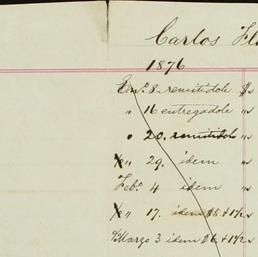 Carlos Fl
1876
En.º 8 remitidole $s
" 16 entregadole "s
" 20. remitidole "s
" 29. idem "s
Feb.º 4 idem "s
" 17. idem $5 + 1½ s
Marzo 3 idem $6 + 1½ s